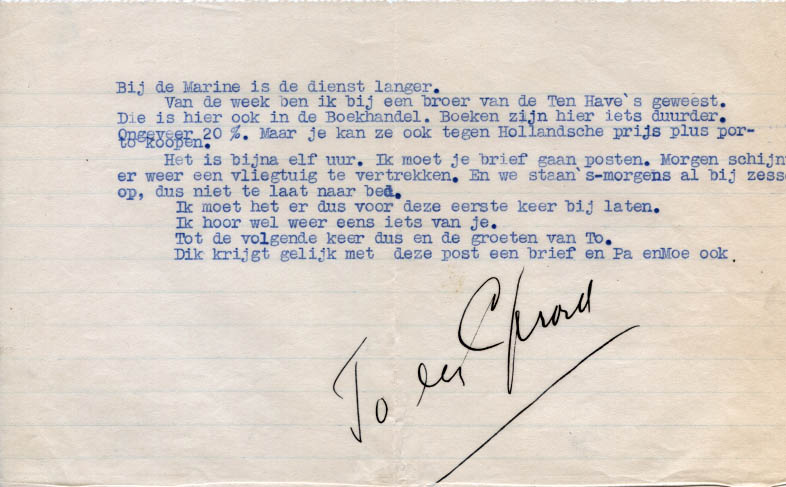 Bij de Marine is de dienst langer.
Van de week ben ik bij een broer van de Ten Have`s geweest.
Die is hier ook in de Boekhandel. Boeken zijn hier iets duurder.
Ongeveer 20 %. Maar je kan ze ook tegen Hollandsche prijs plus por-
to koopen.
Het is bijna elf uur. Ik moet je brief gaan posten. Morgen schijn
er weer een vliegtuig te vertrekken. En we staan`s-morgens al bij zess
op, dus niet te laat naar bed.
Ik moet het er dus voor deze eerste keer bij laten.
Ik hoor wel weer eens iets van je.
Tot de volgende keer dus en de groeten van To.
Dik krijgt gelijk met deze post een brief en Pa enMoe ook.
To en Gerard